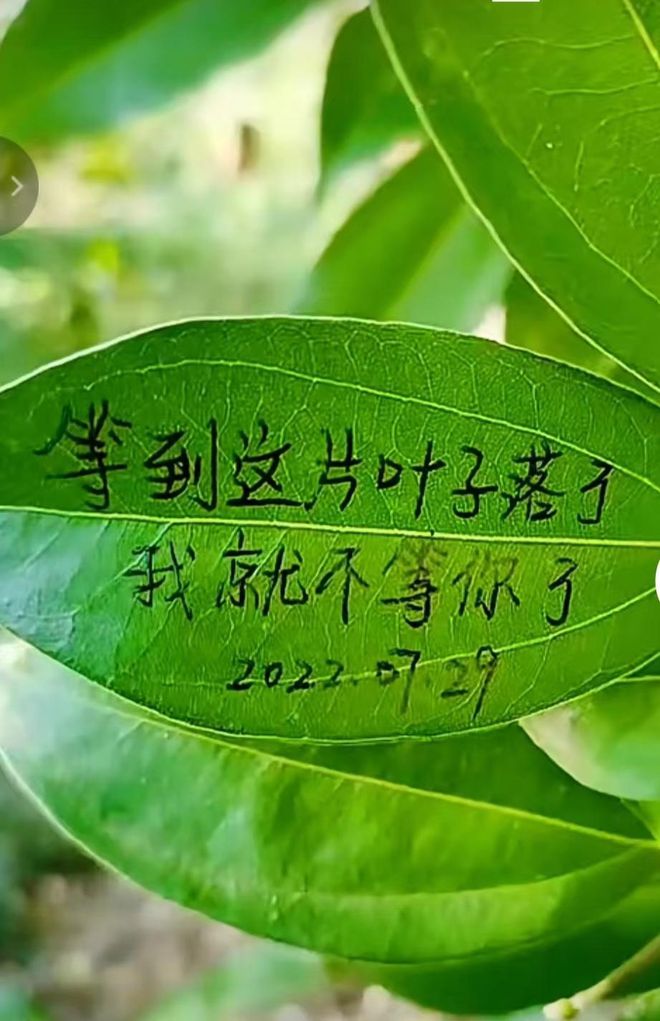 等到这片叶子落了
我就不等你了
2022.07.29